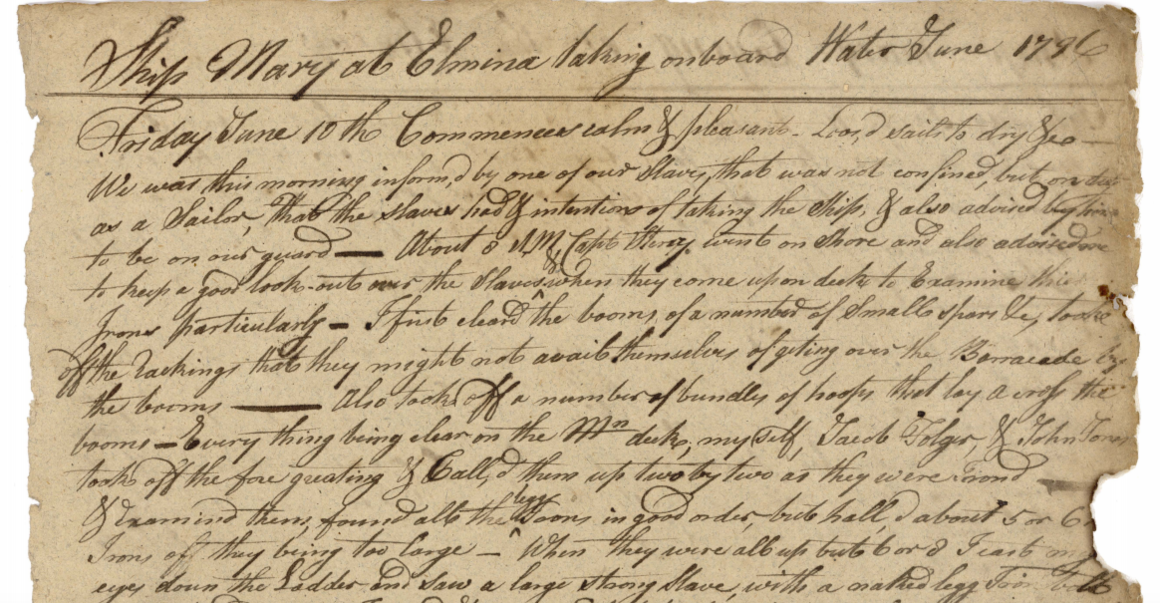 Ship Mary at Elmina taking onboard Water June 1796
Friday June 10th Commences calm & pleasant - Loos,d sails to dry &c —
We was this morning inform,d by one of our Slaves, that was not confined, but on deck
as a Sailor, that the slaves had intentions of taking the Ship, & also advised
to be on our guard — About 8 AM Capt went on Shore and also advised me
to keep a good look-out over the Slaves & when they come upon deck to Examine their
Irons particularly - I first cleard the booms, of a number of Small spars &c, took
off the lashings that they might not avail themselves of geting over the Barracade by
the booms — Also took off a number of bundles of hoops that lay a cross the
booms - Every thing being clear on the Mn deck, my self, Jacob Folger, & John Jones
took off the fore greating & Call,d them up two by two as they were Irond —
& Examind them, found all the legg Irons in good order, but hall,d about 5 or 6
Irons off they being too large - When they were all up but 6 or 8 I cast my
eyes down the Ladder and saw a large strong Slave, with a naked legg Iron Bolt